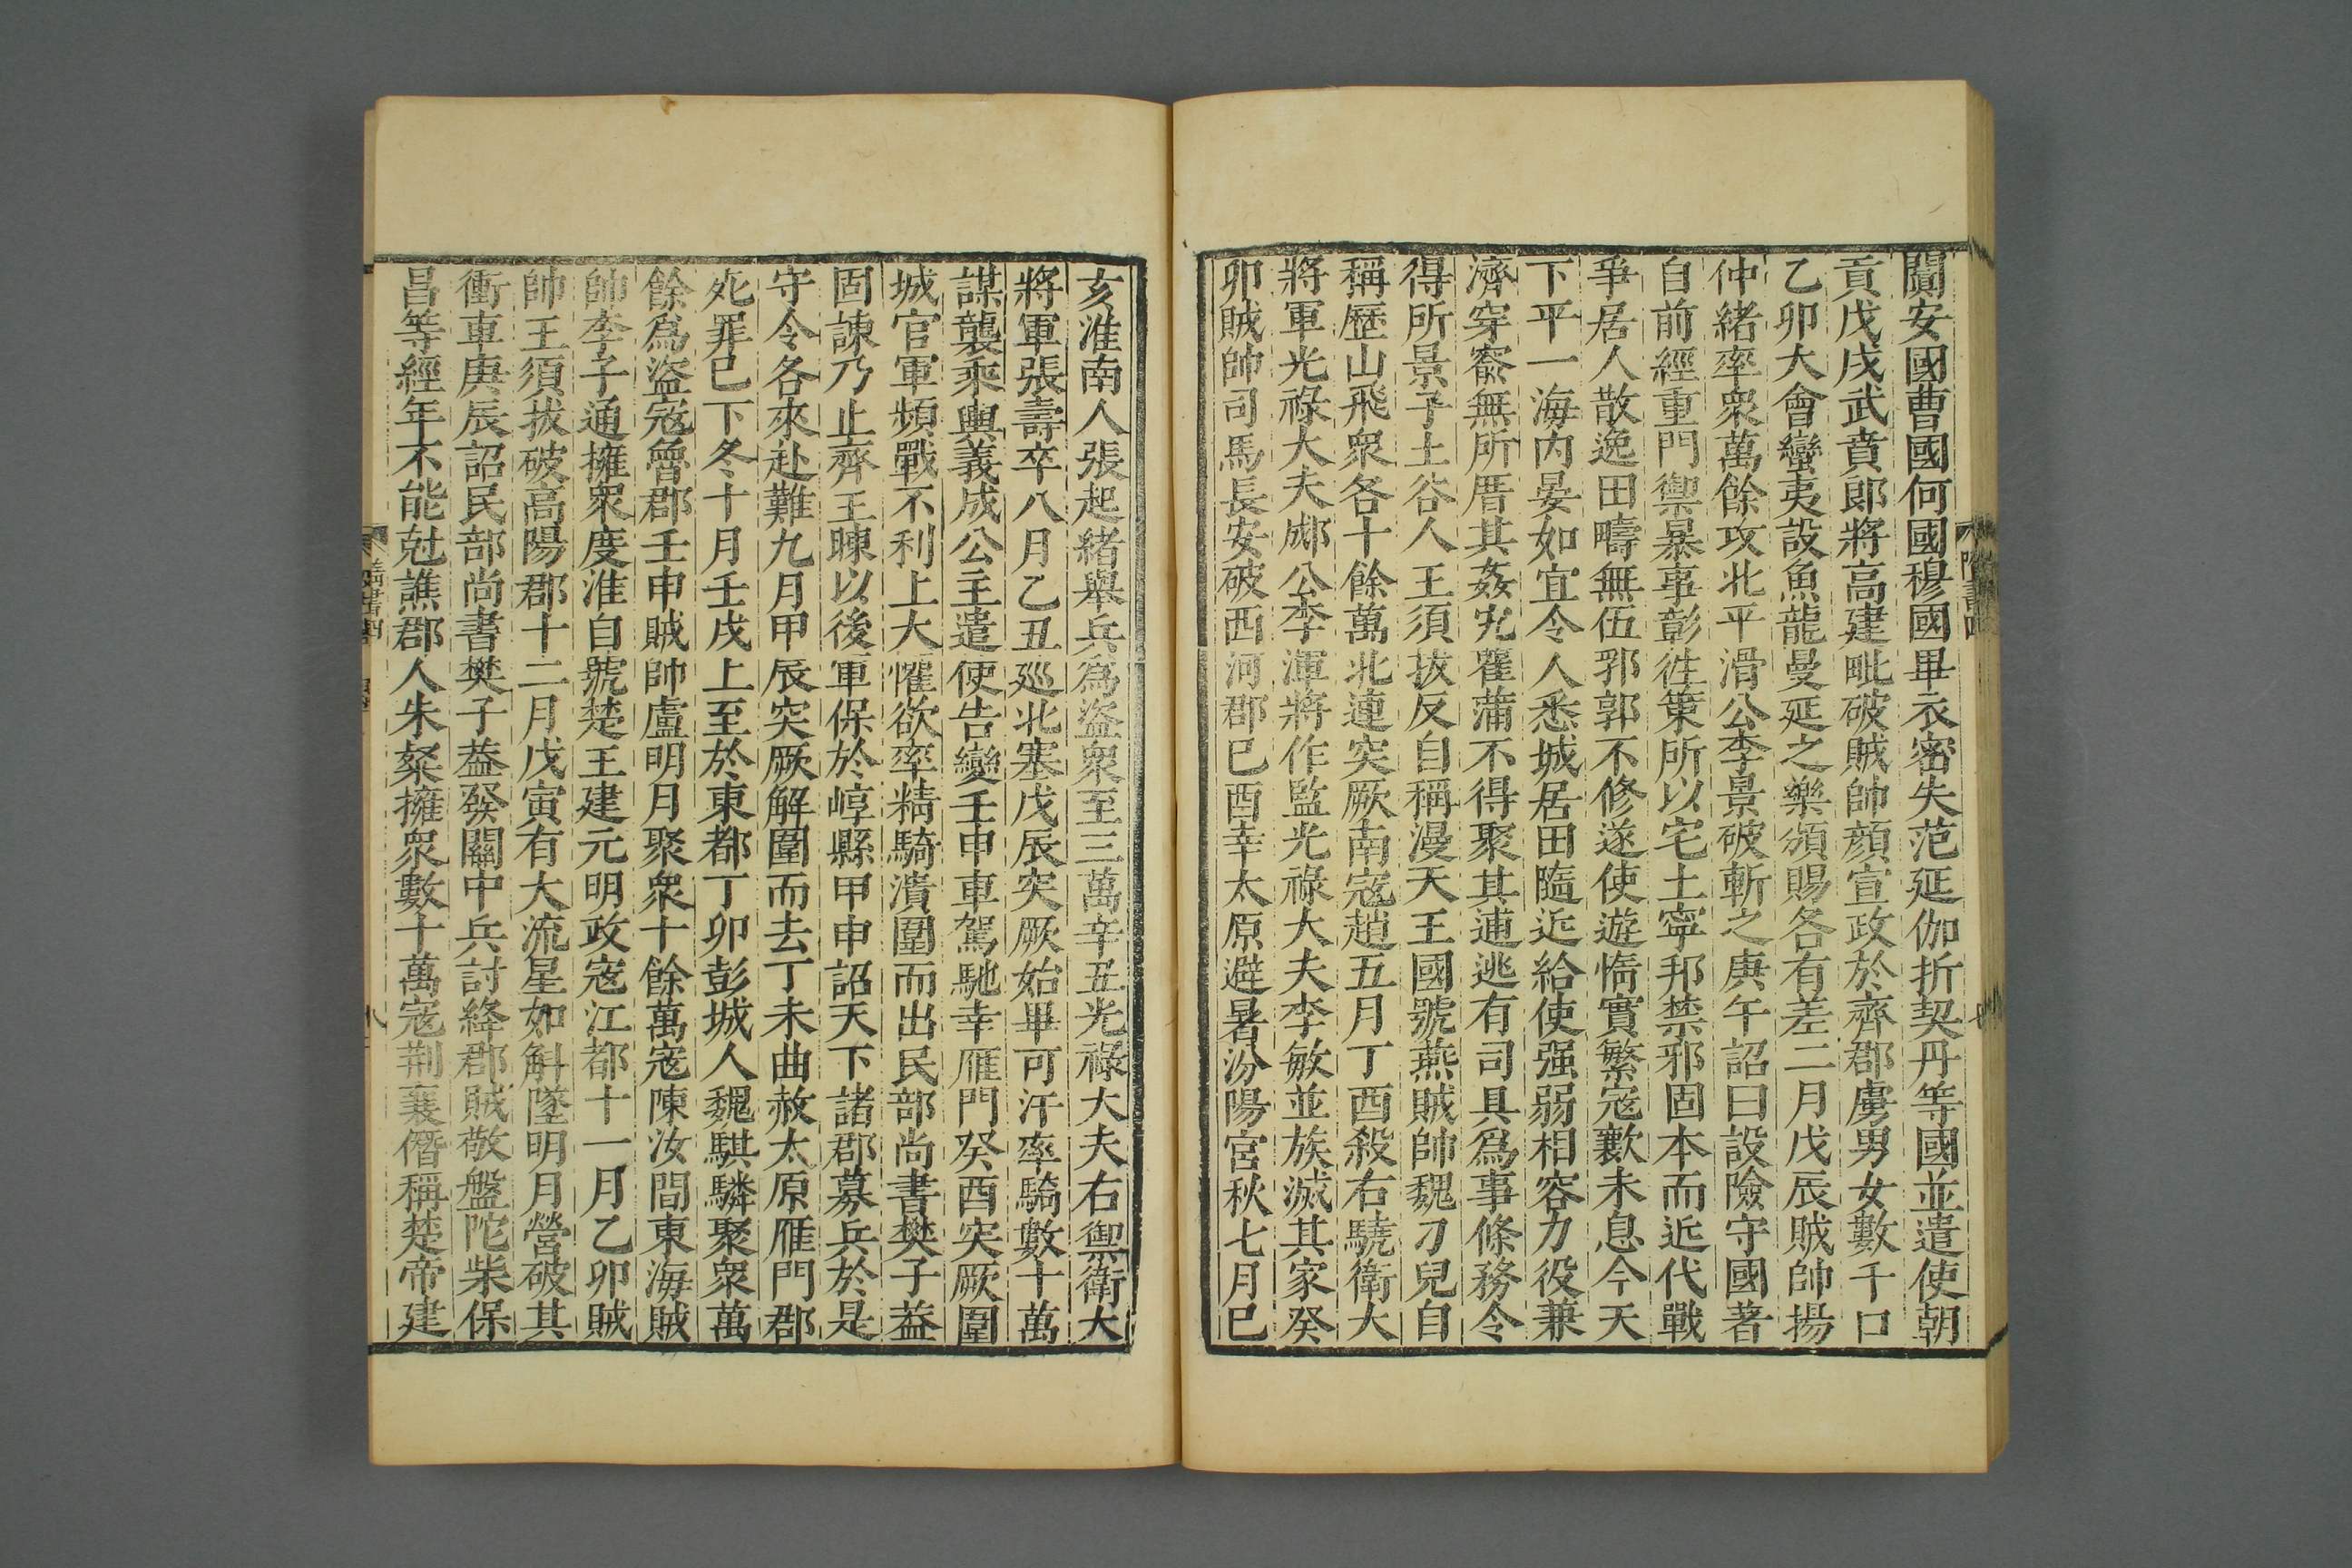 闐安國曹國何國穆國畢衣密失范延伽折契丹等國並遣使朝
貢戊戌武賁郎將高建毗破賊帥顏宣政於齊郡虜男女數千口
乙卯大會蠻夷設魚龍曼延之樂頒賜各有差二月戊辰賊帥揚
仲緒率衆萬餘攻北平滑公李景破斬之庚午詔曰設險守國著
自前經重門禦暴事彰徃策所以宅土寧邦禁邪固本而近代戰
爭居人散逸田疇無伍郛郭不修遂使遊惰實繁寇歎未息今天
下平一海内晏如宜令人悉城居田隨近給使强弱相容力役兼
濟穿窬無所厝其姦宄雚蒲不得聚其逋逃有司具爲事條務令
得所景子上谷人王須拔反自稱漫天王國號燕賊帥魏刁兒自
稱歷山飛衆各十餘萬北連突厥南寇趙五月丁酉殺右驍衛大
將軍光祿大夫郕公李渾將作監光祿大夫李敏並族滅其家癸
卯賊帥司馬長安破西河郡己酉幸太原避暑汾陽宮秋七月己
亥淮南人張起緒舉兵爲盜衆至三萬辛丑光祿大夫右禦衛大
將軍張壽卒八月乙丑廵北塞戊辰突厥始畢可汗率騎數十萬
謀襲乘輿義成公主遣使告變壬申車駕馳幸雁門癸酉突厥圍
城官軍頻戰不利上大懼欲率精騎潰圍而出民部尚書樊子蓋
固諫乃止齊王暕以後軍保於崞縣甲申詔天下諸郡募兵於是
守令各來赴難九月甲辰突厥解圍而去丁未曲赦太原雁門郡
死罪已下冬十月壬戌上至於東都丁卯彭城人魏騏驎聚衆萬
餘爲盜寇魯郡壬申賊帥盧明月聚衆十餘萬寇陳汝間東海賊
帥李子通擁衆度淮自號楚王建元明政寇江都十一月乙卯賊
帥王須拔破高陽郡十二月戊寅有大流星如斛墜明月營破其
衝車庚辰詔民部尚書樊子蓋發關中兵討絳郡賊敬盤陀柴保
昌等經年不能尅譙郡人朱粲擁衆數十萬寇荆襄僭稱楚帝建